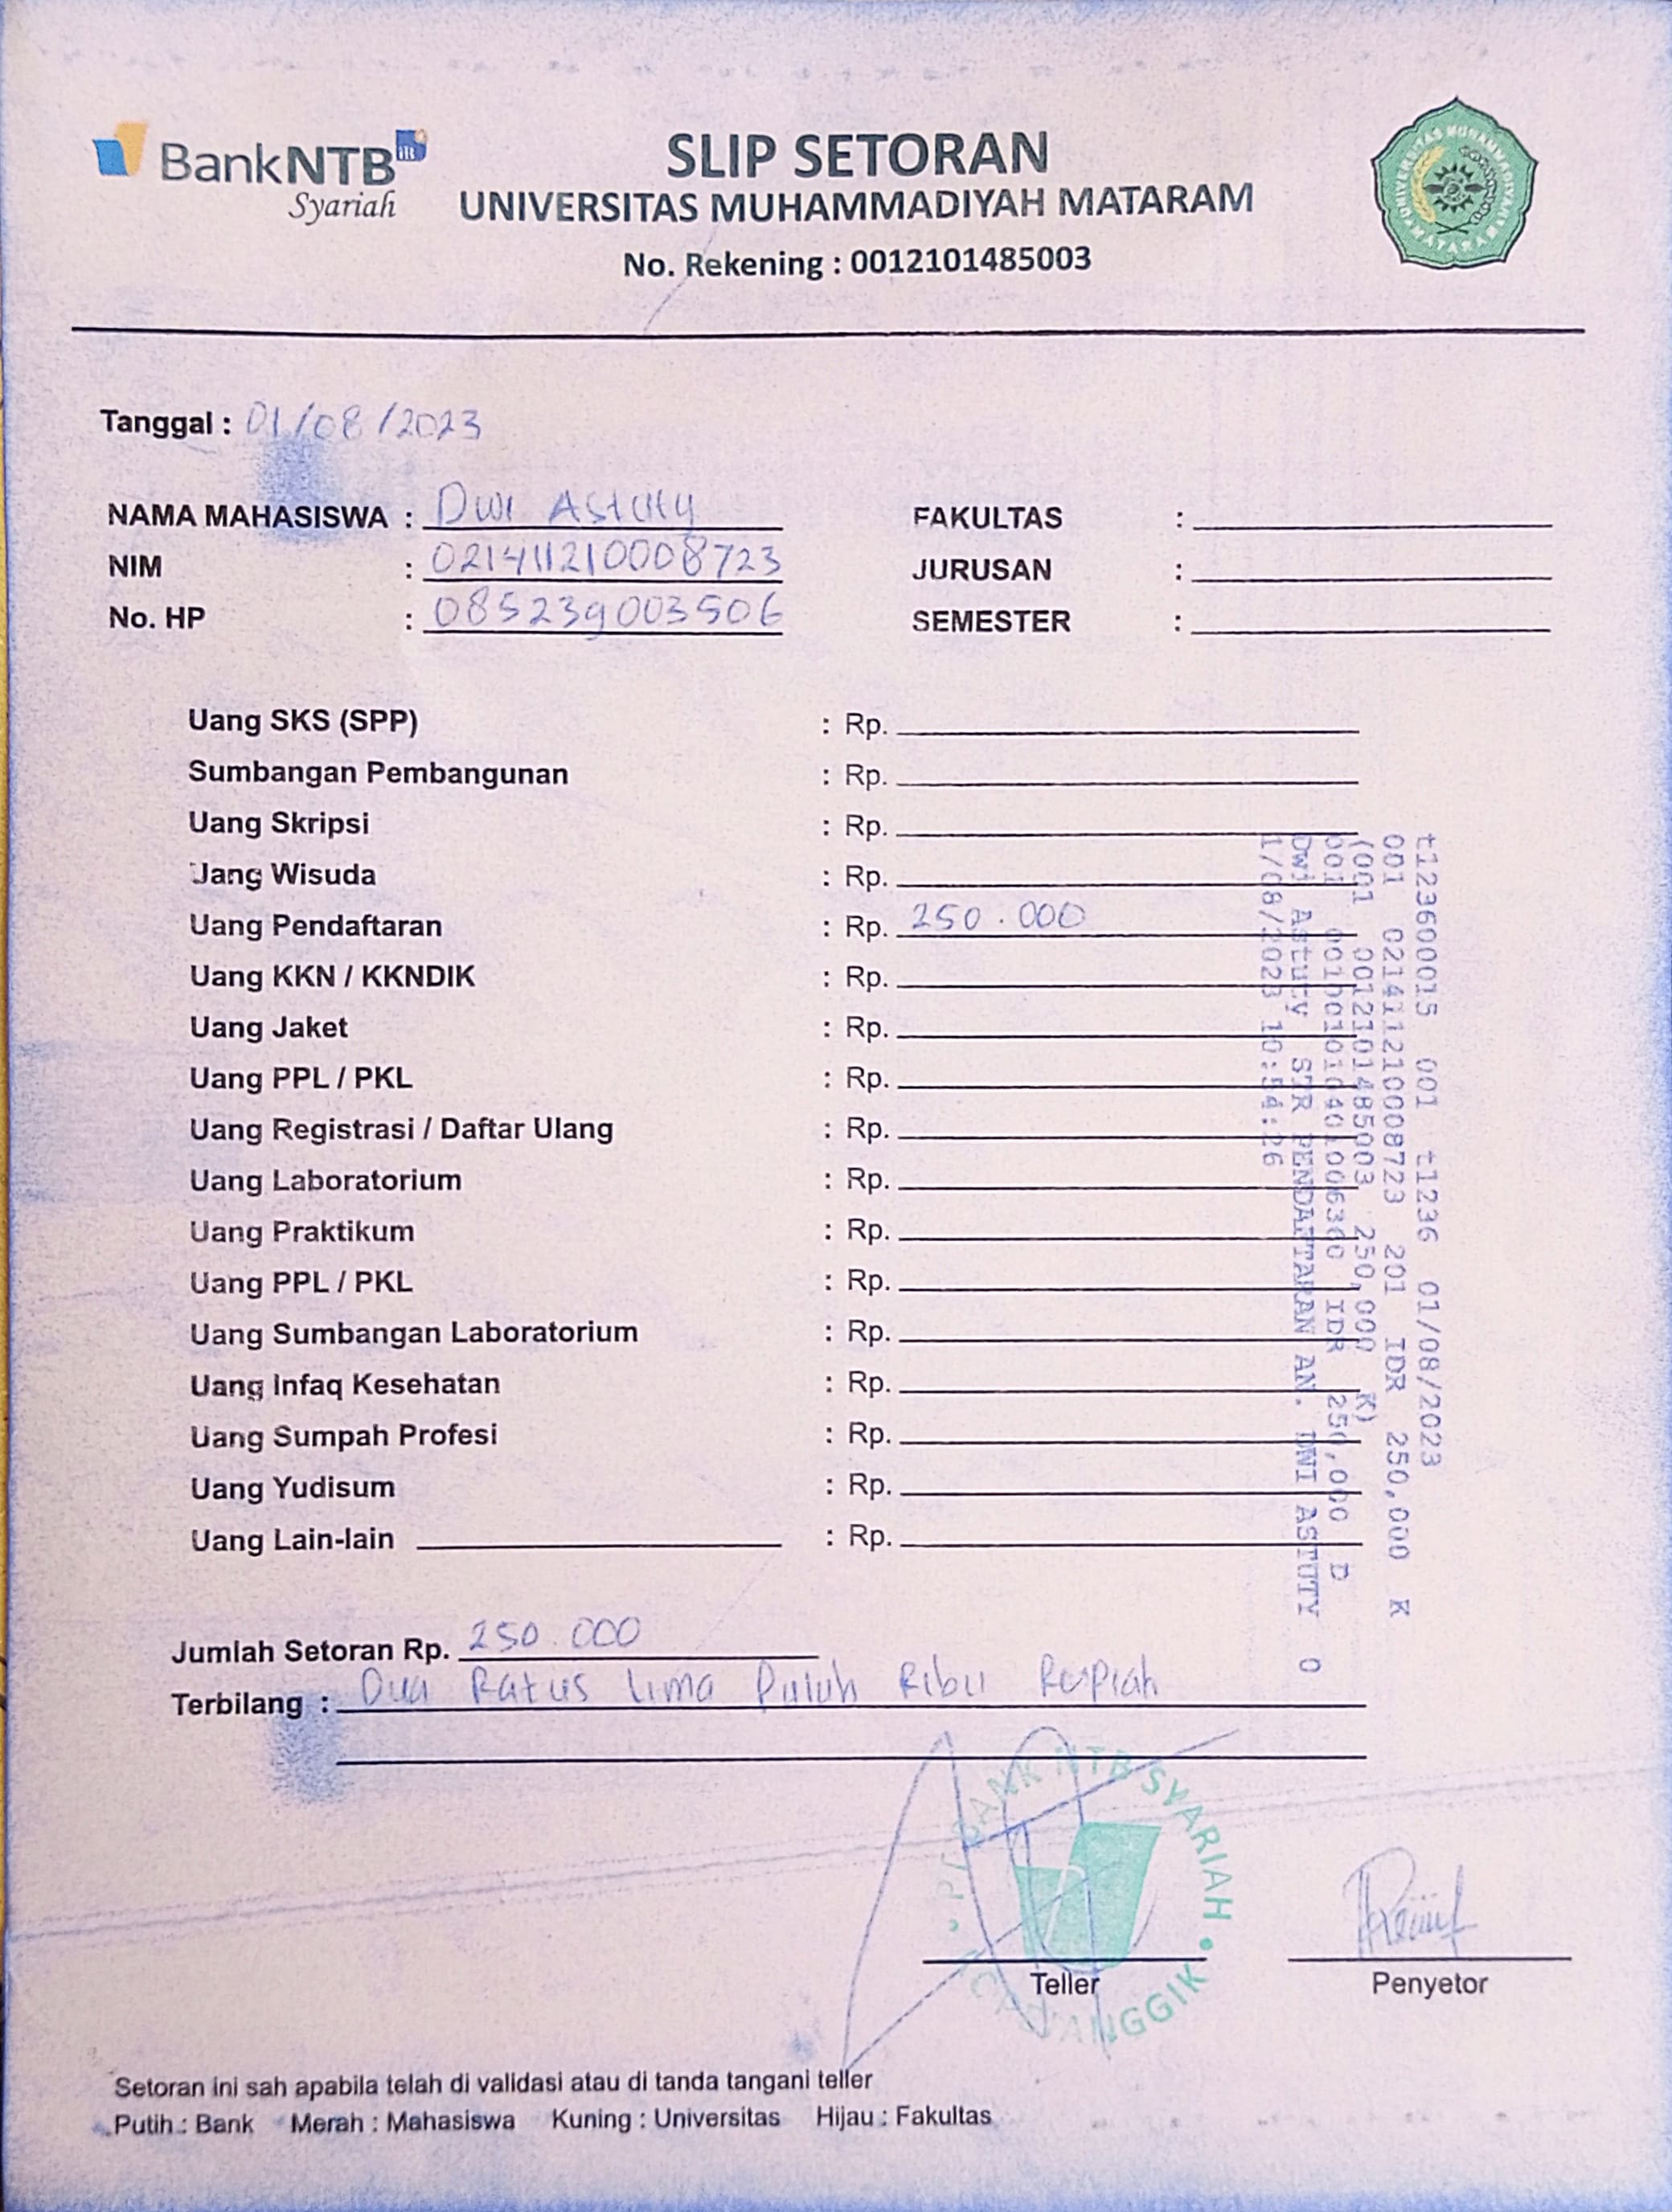 BankNTB iB
Syariah
SLIP SETORAN
UNIVERSITAS MUHAMMADIYAH MATARAM
No. Rekening : 0012101485003
UNIVERSITAS MUHAMMADIYAH MATARAM
Tanggal : 01/08/2023
NAMA MAHASISWA : Dwi Astuty
NIM : 021411210008723
No. HP : 085239003506
FAKULTAS :
JURUSAN :
SEMESTER :
Uang SKS (SPP) : Rp.
Sumbangan Pembangunan : Rp.
Uang Skripsi : Rp.
Jang Wisuda : Rp.
Uang Pendaftaran : Rp. 250.000
Uang KKN / KKNDIK : Rp.
Uang Jaket : Rp.
Uang PPL / PKL : Rp.
Uang Registrasi / Daftar Ulang : Rp.
Uang Laboratorium : Rp.
Uang Praktikum : Rp.
Uang PPL / PKL : Rp.
Uang Sumbangan Laboratorium : Rp.
Uang Infaq Kesehatan : Rp.
Uang Sumpah Profesi : Rp.
Uang Yudisum : Rp.
Uang Lain-lain : Rp.
t123600015 001 t1236 01/08/2023
001 021411210008723 201 IDR 250,000 K
(001 0012101485003 250,000 K)
001 IDR 250,000 D
Dwi Astuty STR PENDAFTARAN AN. DWI ASTUTY 0
1/08/2023 10:54:26
Jumlah Setoran Rp. 250.000
Terbilang : Dua Ratus Lima Puluh Ribu Rupiah
BANK NTB SYARIAH
Teller
Penyetor
Setoran ini sah apabila telah di validasi atau di tanda tangani teller
Putih : Bank Merah : Mahasiswa Kuning : Universitas Hijau : Fakultas